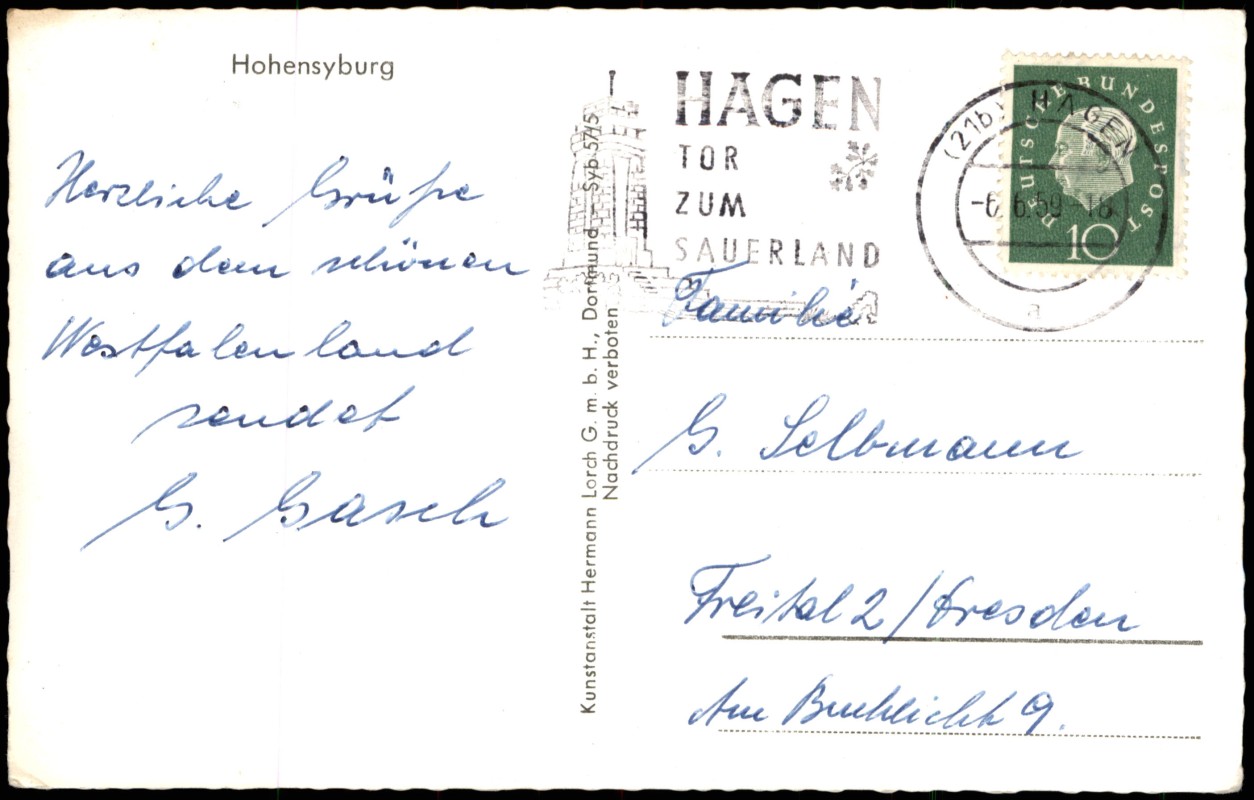 Hohensyburg
Herzliche Grüße
aus dem schönen
Westfalenland
sendet
G. Gasch
Kunstanstalt Hermann Lorch G. m. b. H., Dortmund Syb 57/5
Nachdruck verboten
HAGEN
TOR
ZUM
SAUERLAND
(21b) HAGEN
-6.6.59-18
a
DEUTSCHE BUNDESPOST
10
Familie
G. Selbmann
Freital 2 / Dresden
Am 9.